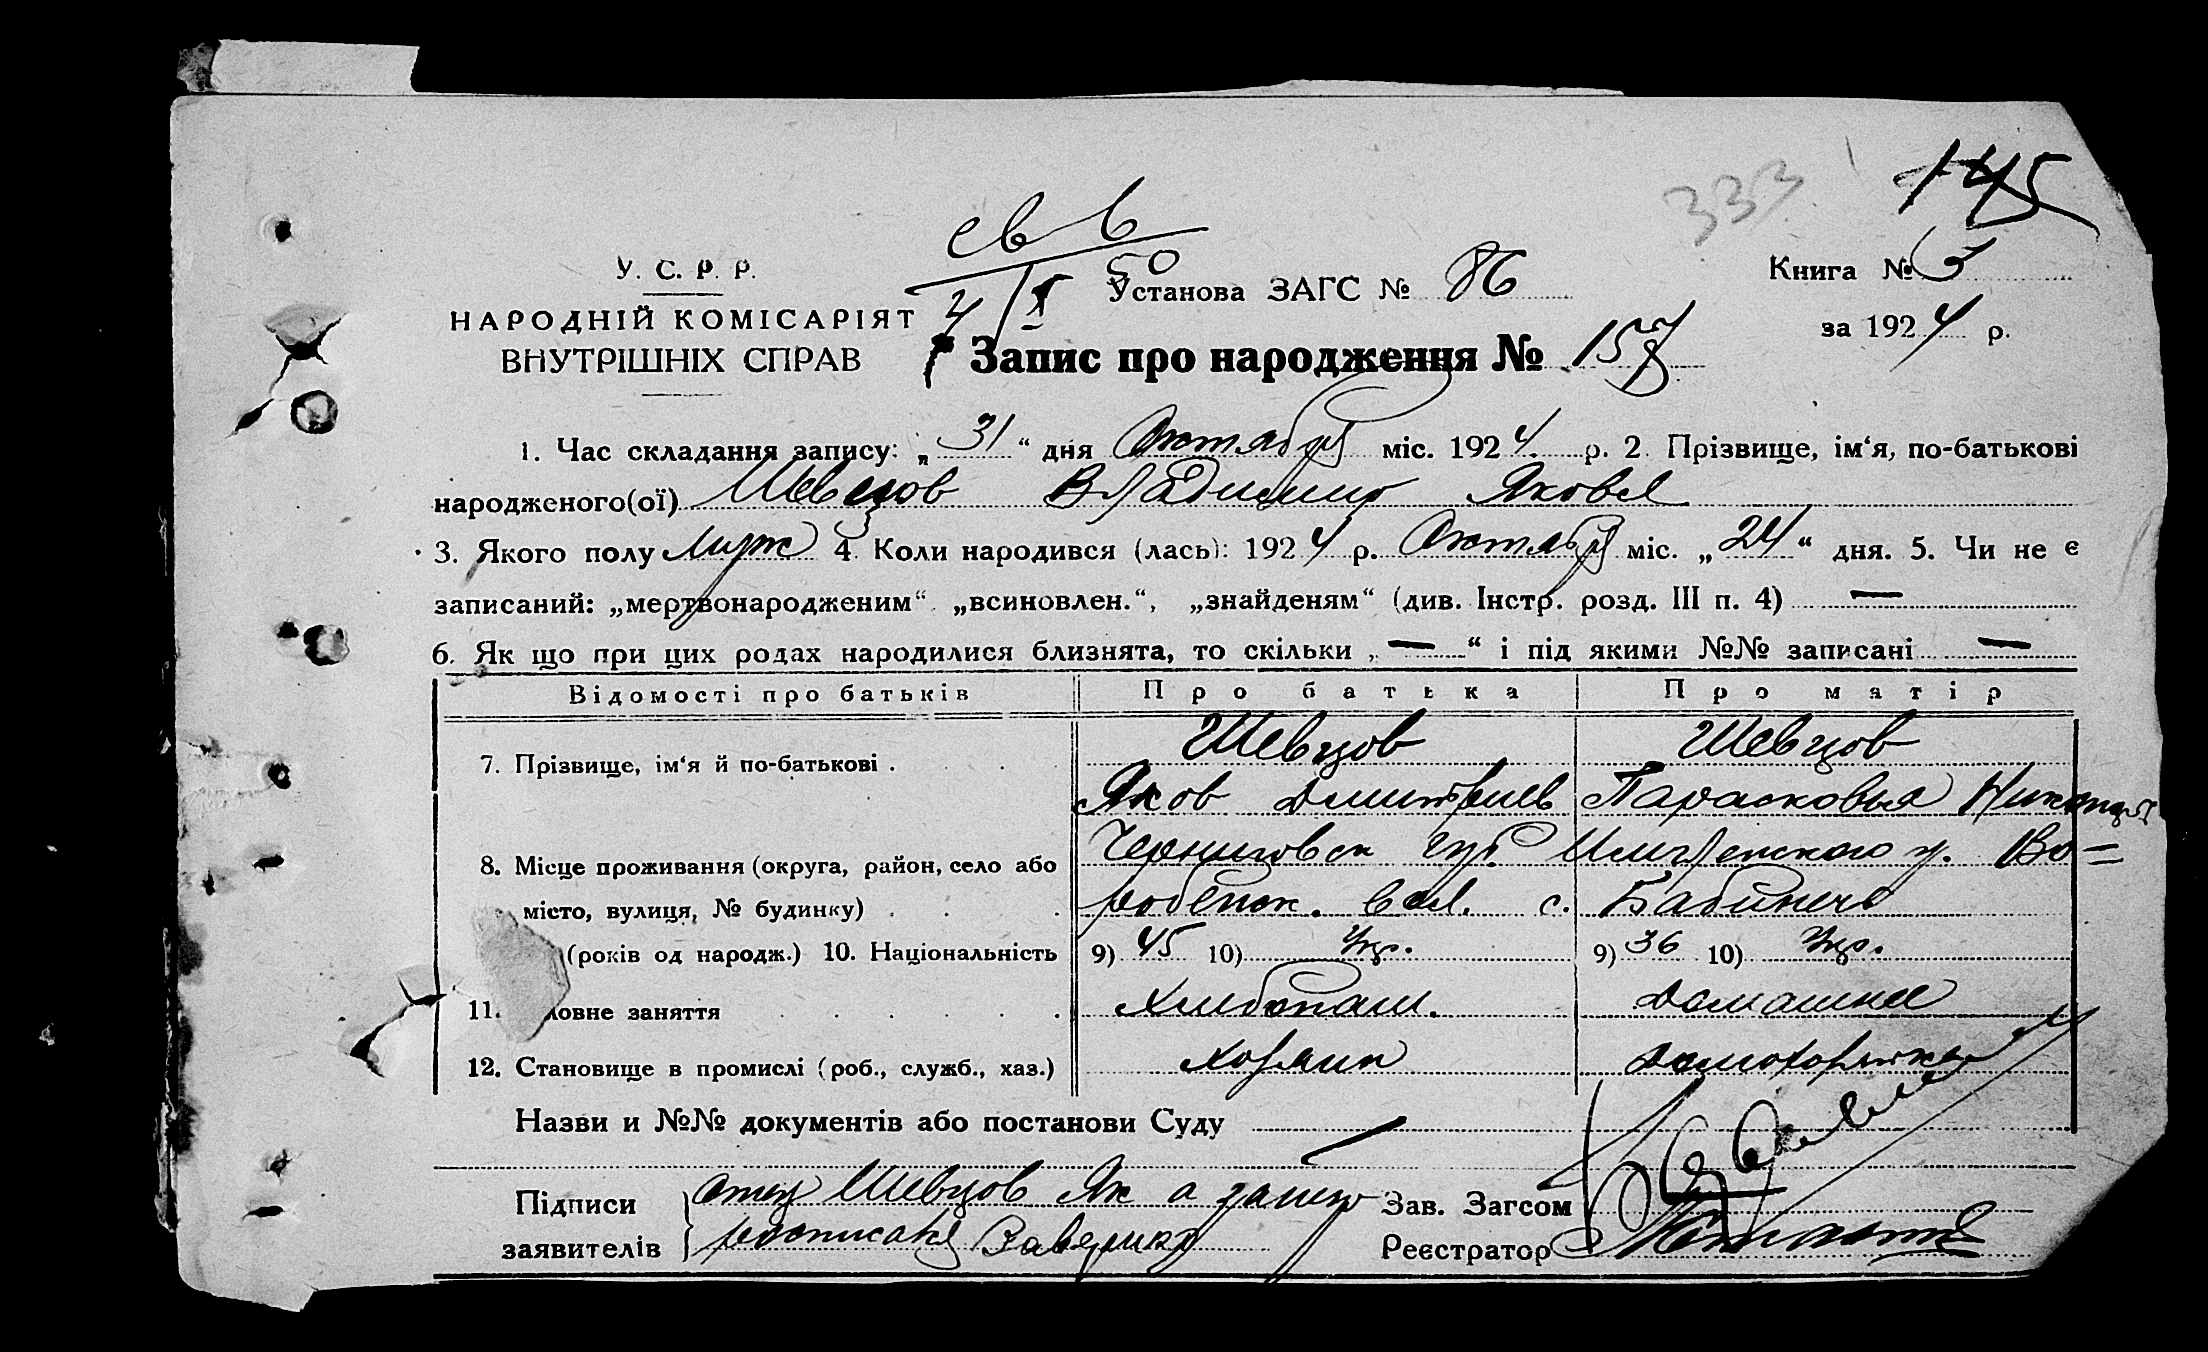 145
333
св 6
50
4/X
У. С. Р. Р.
Установа ЗАГС № 86
Книга № 3
НАРОДНІЙ КОМІСАРІЯТ
за 1924 р.
ВНУТРІШНІХ СПРАВ
Запис про народження № 157
1. Час складання запису: „31“ дня Октября міс. 1924. р. 2. Прізвище, ім‘я, по-батькові
народженого(ої) Шевцов Владимир Яковл
3. Якого полу Муж 4. Коли народився (лась): 1924 р. Октября міс. „24“ дня. 5. Чи не є
записаний: „мертвонародженим“, „всиновлен.“, „знайденям“ (див. Інстр. розд. III п. 4) —
6. Як що при цих родах народилися близнята, то скільки „—“ і під якими №№ записані —
Відомості про батьків Про батька Про матір
Шевцов Шевцов
7. Прізвище, ім‘я й по-батькові .
Яков Дмитриев Парасковья
8. Місце проживання (округа, район, село або Черниговск губ у. Во=
місто, вулиця, № будинку) . робенск. вол. с. Бабиничь
(років од народж.) 10. Національність 9) 45 10) Укр. 9) 36 10) Укр.
11. ловне заняття Хлибопаш. Домашнее
12. Становище в промислі (роб., служб., хаз.) Хозяин Домохозяйка
Назви и №№ документів або постанови Суду —
Підписи отец Шевцов Як а за него Зав. Загсом
заявителів росписався Реєстратор